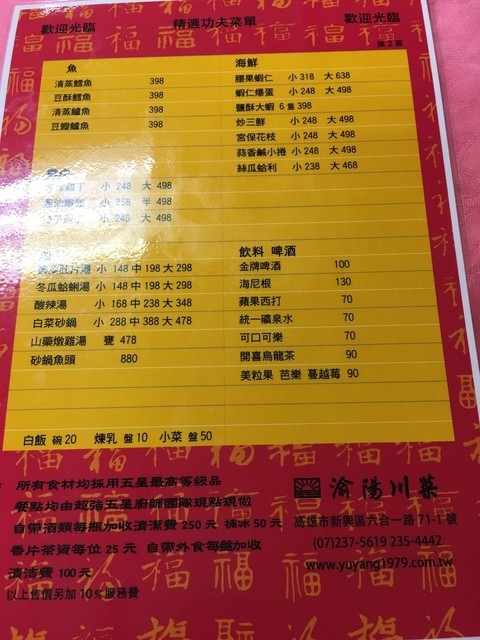 歡迎光臨 精選功夫菜單 歡迎光臨
第2頁
魚
清蒸鱈魚 398
豆酥鱈魚 398
清蒸鱸魚 398
豆瓣鱸魚 398
小 248 大 498
小 258 半 498
小 248 大 498
肚片湯 小 148 中 198 大 298
冬瓜蛤蜊湯 小 148 中 198 大 298
酸辣湯 小 168 中 238 大 348
白菜砂鍋 小 288 中 388 大 478
山藥燉雞湯 甕 478
砂鍋魚頭 880
海鮮
腰果蝦仁 小 318 大 638
蝦仁爆蛋 小 248 大 498
鹽酥大蝦 6 隻 398
炒三鮮 小 248 大 498
宮保花枝 小 248 大 498
蒜香鹹小捲 小 248 大 498
絲瓜蛤利 小 238 大 468
飲料 啤酒
金牌啤酒 100
海尼根 130
蘋果西打 70
統一礦泉水 70
可口可樂 70
開喜烏龍茶 90
美粒果 芭樂 蔓越莓 90
白飯 碗 20 煉乳 盤 10 小菜 盤 50
所有食材均採用五星最高等級品
餐點均由超強五星廚師團隊現點現做
自帶酒類每瓶加收清潔費 250 元 桶冰 50 元
香片茶資每位 25 元 自帶外食每盤加收
清潔費 100 元
以上售價另加 10% 服務費
渝陽川菜
高雄市新興區六合一路 71-1 號
(07)237-5619 235-4442
www.yuyang1979.com.tw